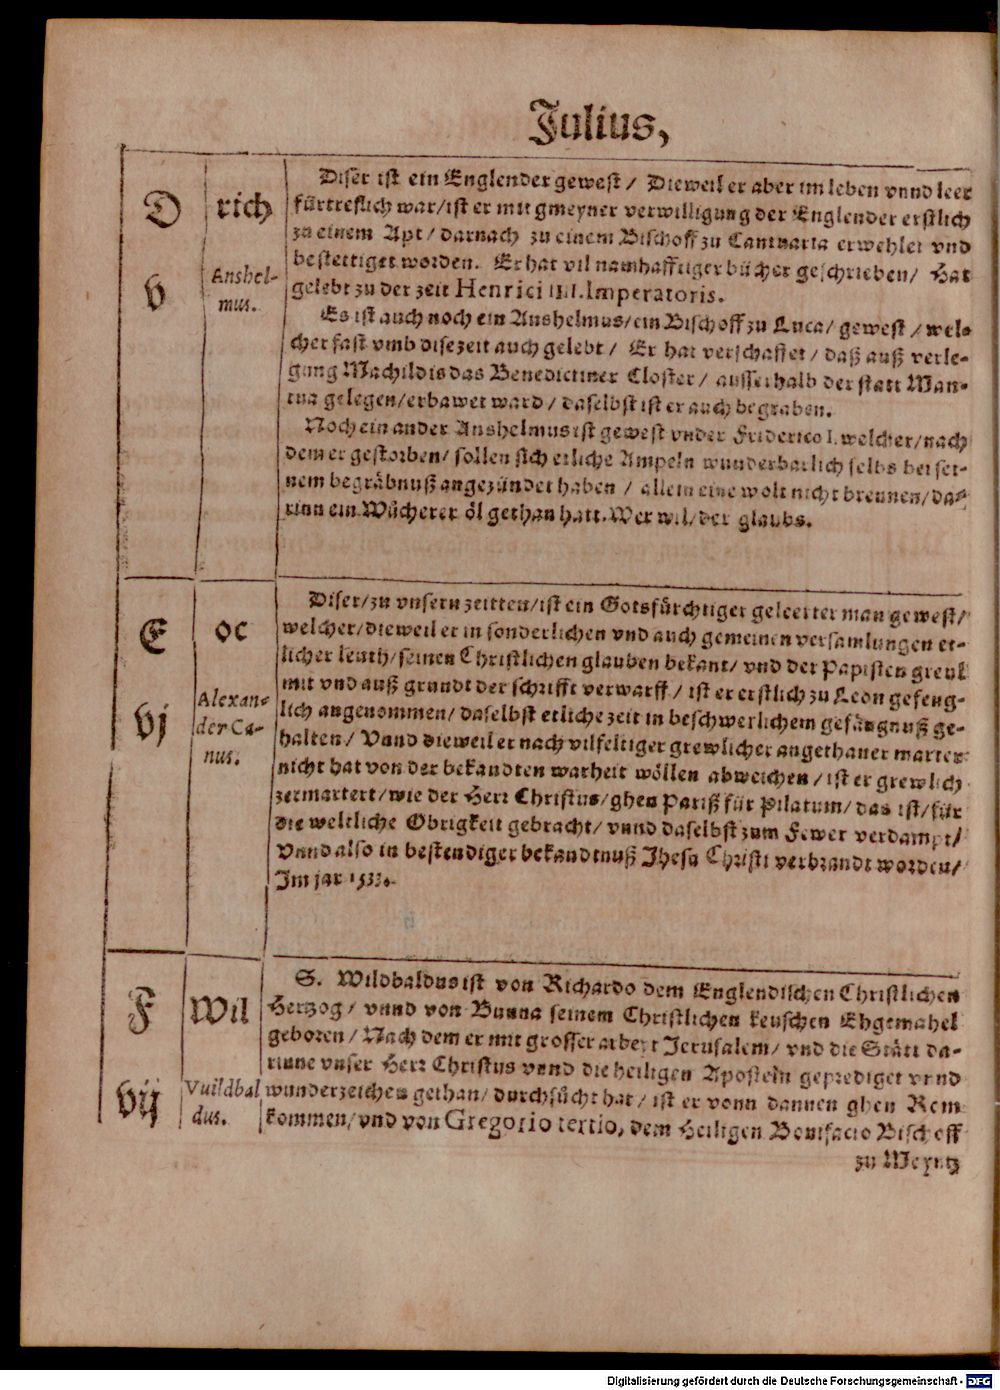 Julius,
D
rich
v
Anshel-
mus.
Diser ist ein Englender gewest / Dieweil er aber im leben vnnd leer
fürtreflich war/ist er mit gmeyner verwilligung der Englender erstlich
zu einem Apt / darnach zu einem Bischoff zu Cantuaria erwehlet vnd
bestettiget worden. Er hat vil namhafftiger bücher geschrieben/ Hat
gelebt zu der zeit Henrici IIII. Imperatoris.
Es ist auch noch ein Anshelmus/ein Bischoff zu Luca/ gewest / wel-
cher fast vmb dise zeit auch gelebt / Er hat verschaffet / daß auß verle-
gung Machildis das Benedictiner Closter / ausserhalb der statt Man-
tua gelegen/erbawet ward / daselbst ist er auch begraben.
Noch ein ander Anshelmus ist gewest vnder Friderico I. welcher/nach
dem er gestorben/ sollen sich etliche Ampeln wunderbarlich selbs bei sei-
nem begräbnuß angezündet haben / allein eine wolt nicht brennen/da-
rinn ein Wůcherer öl gethan hatt. Wer wil/ der glaubs.
E
oc
vj
Alexan-
der Ca-
nus.
Diser/zu vnsern zeitten/ist ein Gotsfürchtiger geleerter man gewest/
welcher/dieweil er in sonderlichen vnd auch gemeinen versamlungen et-
licher leuth/seinen Christlichen glauben bekant/ vnd der Papisten greul
mit vnd auß grundt der schrifft verwarff / ist er erstlich zu Leon gefeng-
lich angenommen/ daselbst etliche zeit in beschwerlichem gefängnuß ge-
halten / Vnnd dieweil er nach vilfeltiger grewlicher angethaner marter
nicht hat von der bekandten warheit wöllen abweichen / ist er grewlich
zermartert/wie der Herr Christus/ghen Pariß für Pilatum/ das ist/für
die weltliche Obrigkeit gebracht/ vnnd daselbst zum Fewer verdampt/
Vnnd also in bestendiger bekandtnuß Jhesu Christi verbrandt worden/
Im jar 1533.
F
Wil
vij
Vuildbal
dus.
S. Wildbaldus ist von Richardo dem Englendischen Christlichen
Hertzog / vnnd von Bunna seinem Christlichen keuschen Ehgemahel
geboren / Nach dem er mit grosser arbeyt Jerusalem/ vnd die Stätt da-
rinne vnser Herr Christus vnnd die heiligen Aposteln geprediget vnnd
wunderzeichen gethan/ durchsůcht hat / ist er vonn dannen ghen Rom
kommen/vnd von Gregorio tertio, dem Heiligen Bonifacio Bischoff
zu Meyntz
Digitalisierung gefördert durch die Deutsche Forschungsgemeinschaft - DFG